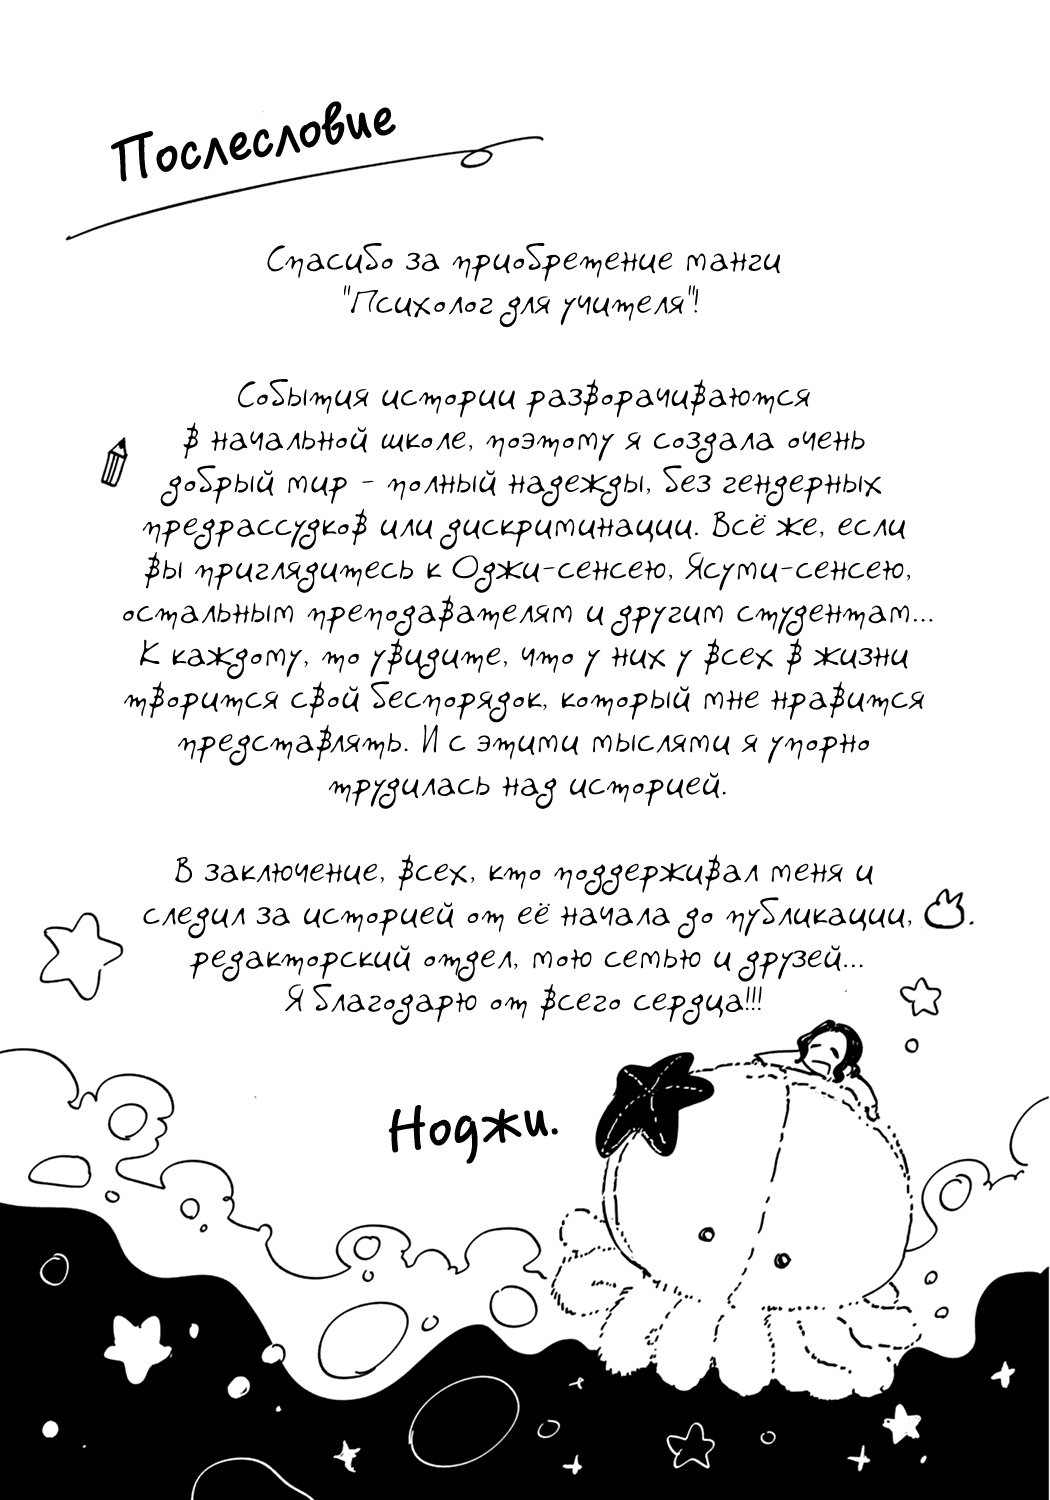 Послесловие
Спасибо за приобретение манги
"Психолог для учителя"!
События истории разворачиваются
в начальной школе, поэтому я создала очень
добрый мир - полный надежды, без гендерных
предрассудков или дискриминации. Всё же, если
вы приглядитесь к Оджи-сенсею, Ясуми-сенсею,
остальным преподавателям и другим студентам...
К каждому, то увидите, что у них у всех в жизни
творится свой беспорядок, который мне нравится
представлять. И с этими мыслями я упорно
трудилась над историей.
В заключение, всех, кто поддерживал меня и
следил за историей от её начала до публикации,
редакторский отдел, мою семью и друзей...
Я благодарю от всего сердца!!!
Ноджи.